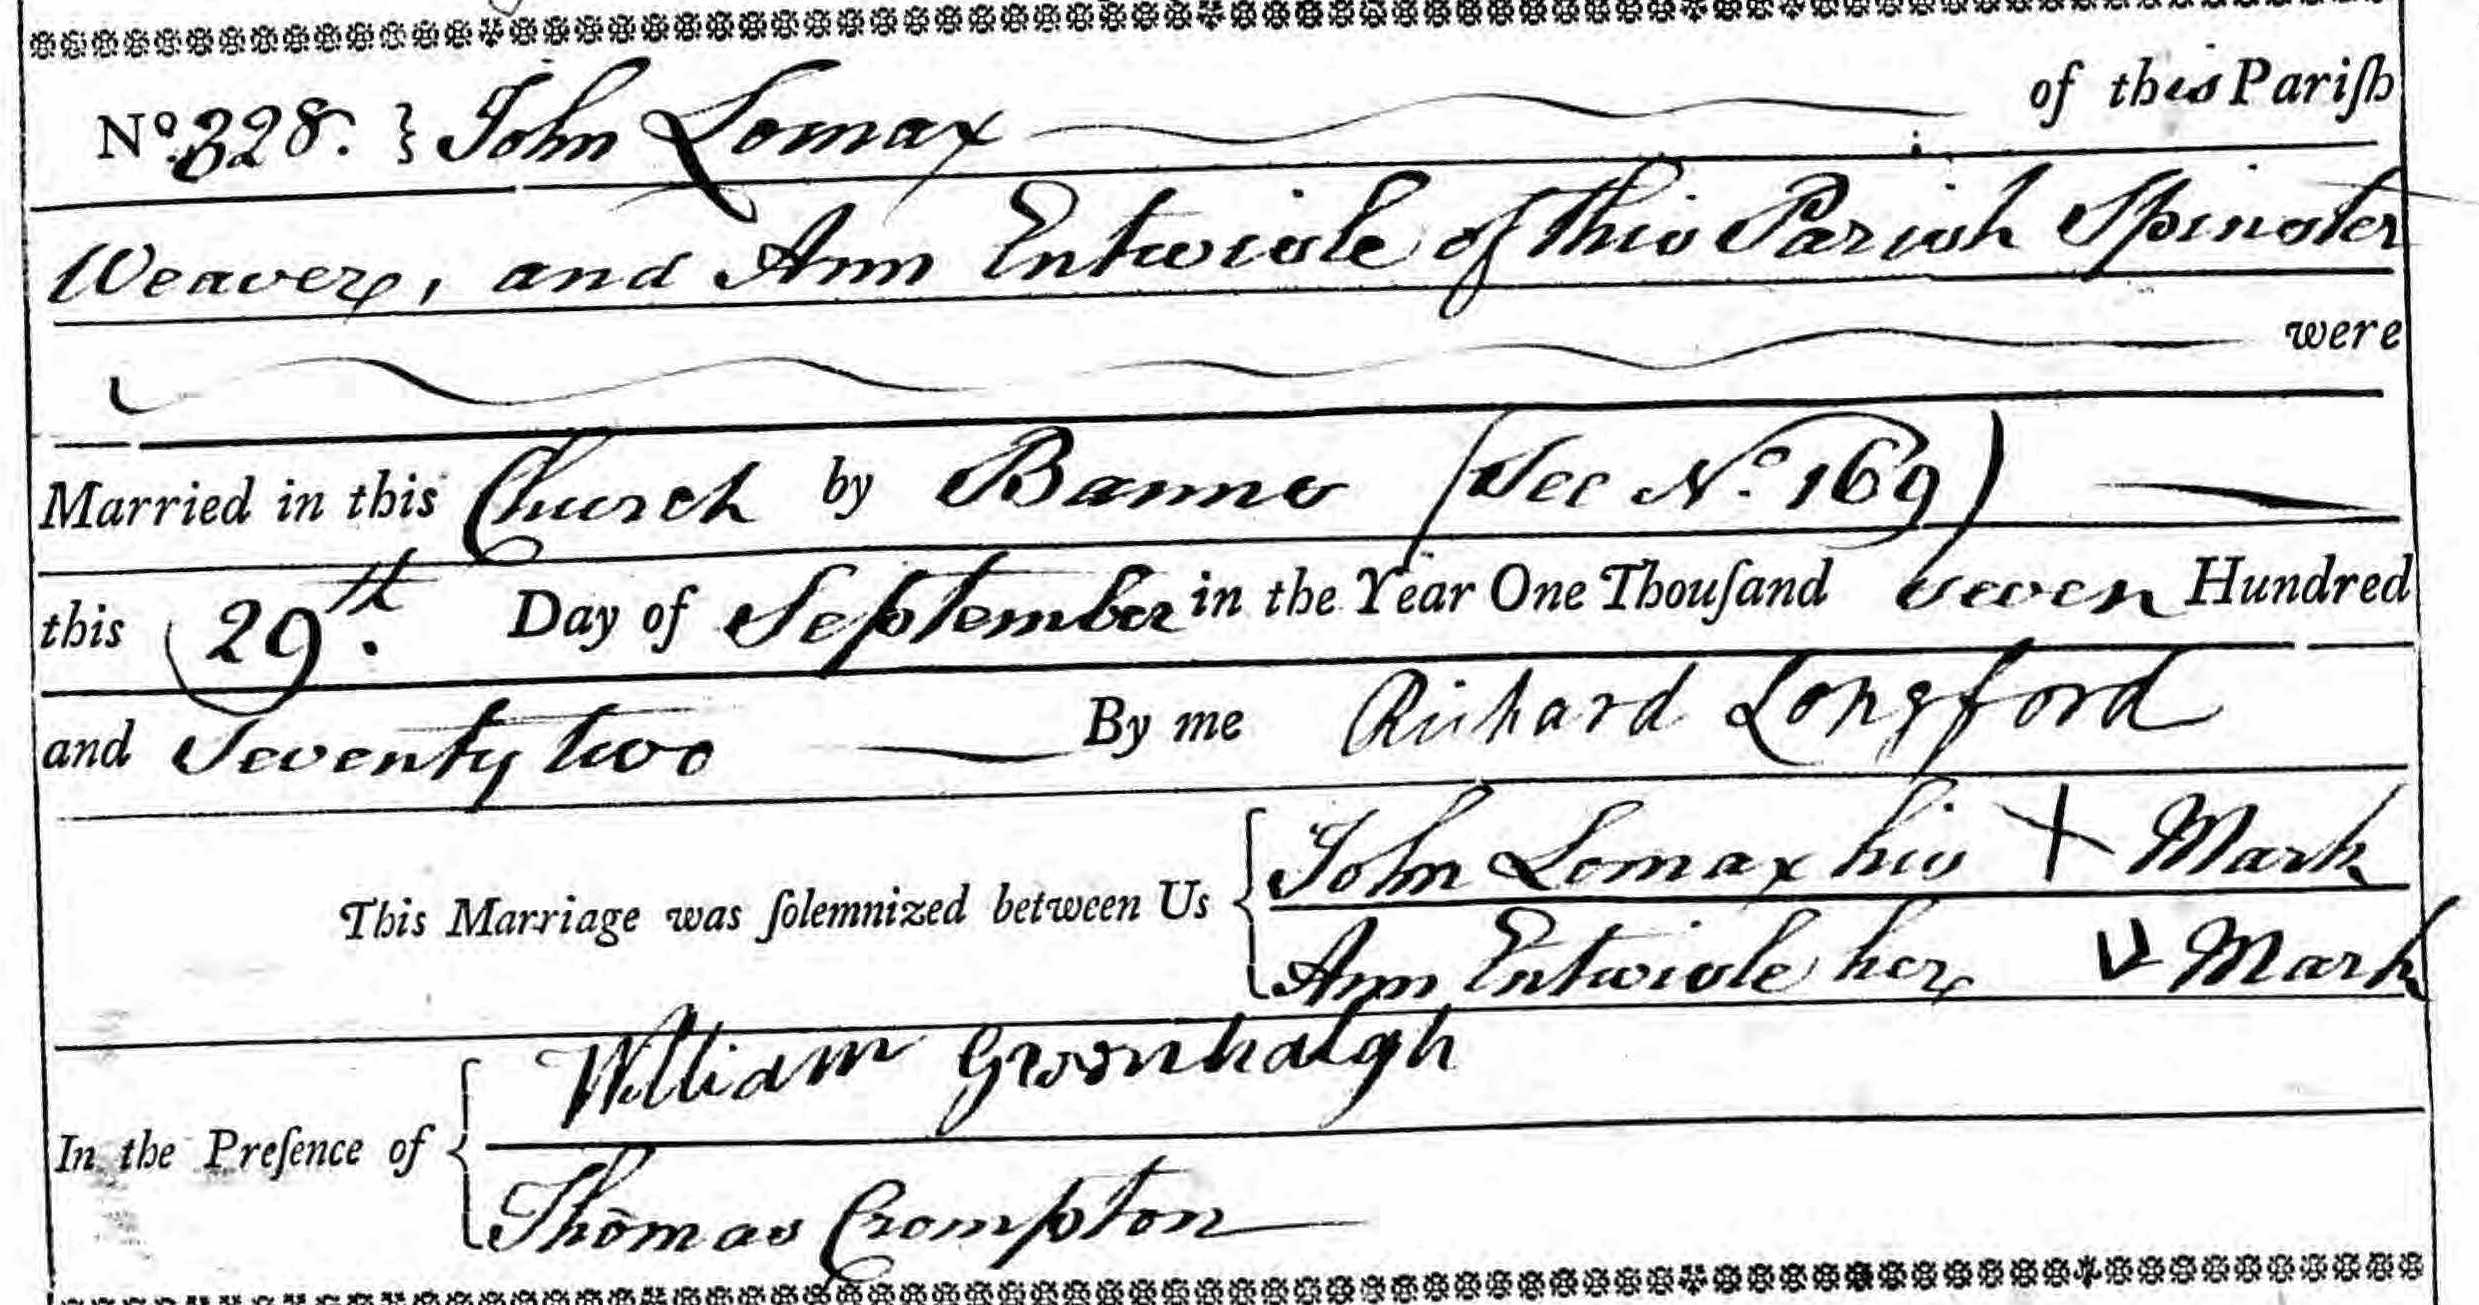 No. 328. } John Lomax of this Pariſh
Weaver, and Ann Entwisle of this Parish Spinster
were
Married in this Church by Banns (See No. 169)
this 29th. Day of September in the Year One Thouſand seven Hundred
and Seventy two By me Richard Longford
This Marriage was ſolemnized between Us { John Lomax his + Mark
Ann Entwisle her V Mark
In the Preſence of { William Greenhalgh
Thomas Crompton